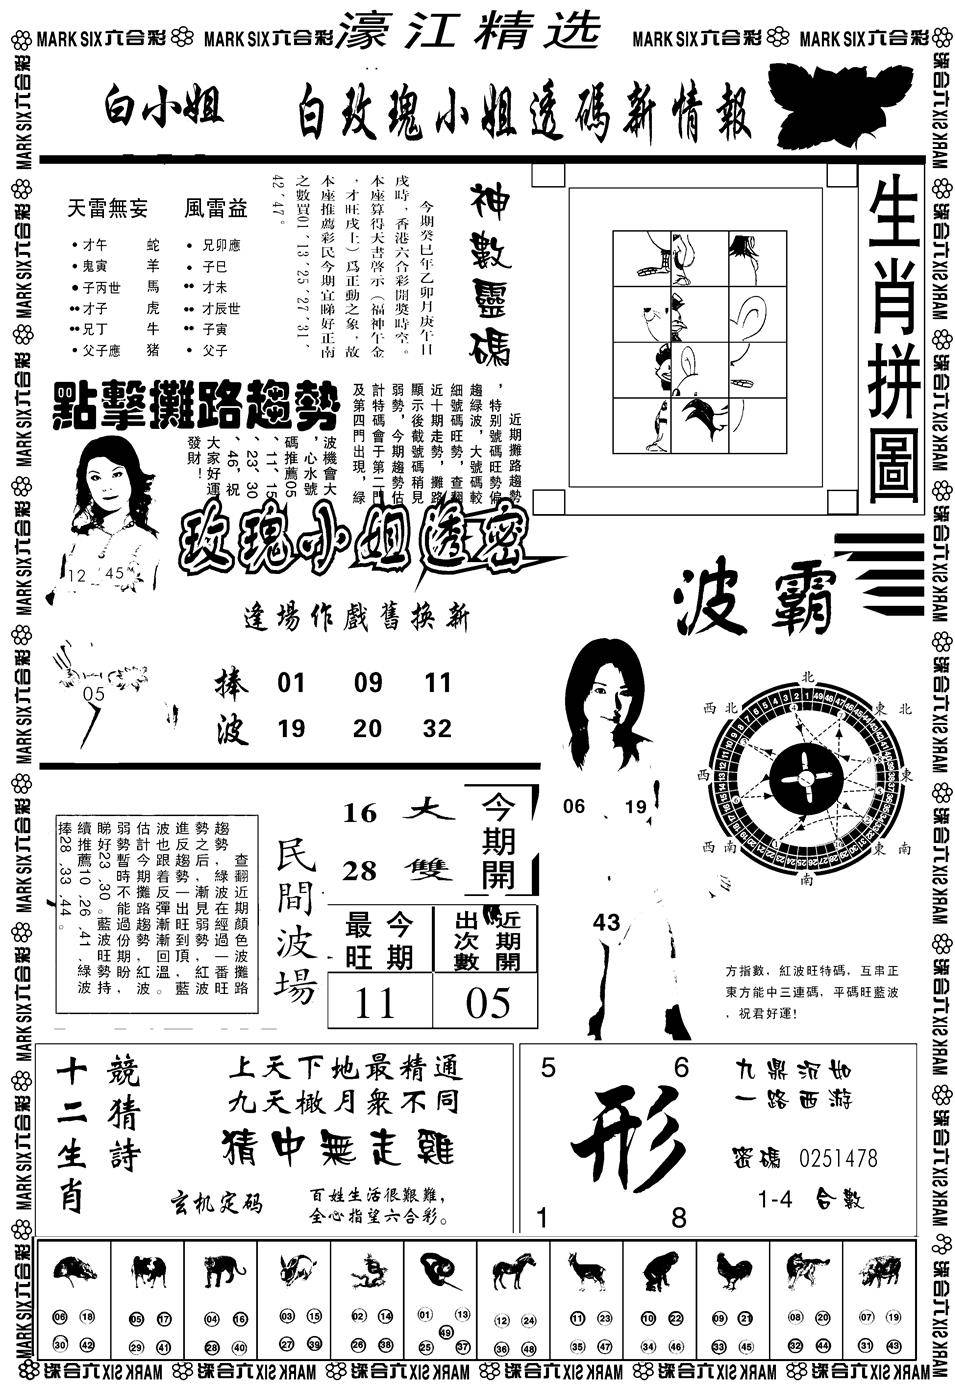 濠江精选
MARK SIX六合彩 MARK SIX六合彩 MARK SIX六合彩 MARK SIX六合彩
白小姐 白玫瑰小姐透碼新情報
天雷無妄 風雷益
才午 蛇 兄卯應
鬼寅 羊 子巳
子丙世 馬 才未
才子 虎 才辰世
兄丁 牛 子寅
父子應 猪 父子
神數靈碼
今期癸巳年乙卯月庚午日
戌時，香港六合彩開獎時空。
本座算得天書啓示（福神午金
，才旺戌上）爲正動之象，故
本座推薦彩民今期宜睇好正南
之數買01，13，25，27，31，
42，47。
生肖拼圖
點擊攤路趨勢
近期攤路趨勢
，特別號碼旺勢偏
趨綠波，大號碼較
細號碼旺勢，查翻
近十期走勢，攤路
顯示後截號碼稍見
弱勢，今期趨勢估
計特碼會于第二門
及第四門出現，綠
波機會大
，心水號
碼推薦05
、11、15
、23、30
、46，祝
大家好運
發財！
玫瑰小姐透密
12 45
05
逢場作戲舊換新
捧 01 09 11
波 19 20 32
波霸
北
西北 東北
西 東
西南 東南
南
06 19
43
方指數，紅波旺特碼，互串正
東方能中三連碼，平碼旺藍波
，祝君好運！
查翻近期顏色波攤路
趨勢，綠波在經過一番旺
勢之后，漸見弱勢，紅波
進反趨勢一出旺到頂，藍
波也跟着反彈漸漸回溫。
估計今期攤路趨勢紅波
弱勢暫時不能過份期盼，
睇好23，30。藍波旺勢持
續推薦10，26，41、綠波
捧28，33，44。
民間波場
16 大
28 雙
今期開
今期最旺
近期開出次數
11 05
競猜詩
十二生肖
上天下地最精通
九天橄月衆不同
猜中無走雞
玄机定码
百姓生活很艱難，
全心指望六合彩。
5 6
形
1 8
九鼎沉如
一路西游
密碼 0251478
1-4 合數
06 18 05 17 04 16 03 15 02 14 01 13 12 24 11 23 10 22 09 21 08 20 07 19
49
30 42 29 41 28 40 27 39 26 38 25 37 36 48 35 47 34 46 33 45 32 44 31 43
MARK SIX六合彩 MARK SIX六合彩 MARK SIX六合彩 MARK SIX六合彩 MARK SIX六合彩 MARK SIX六合彩